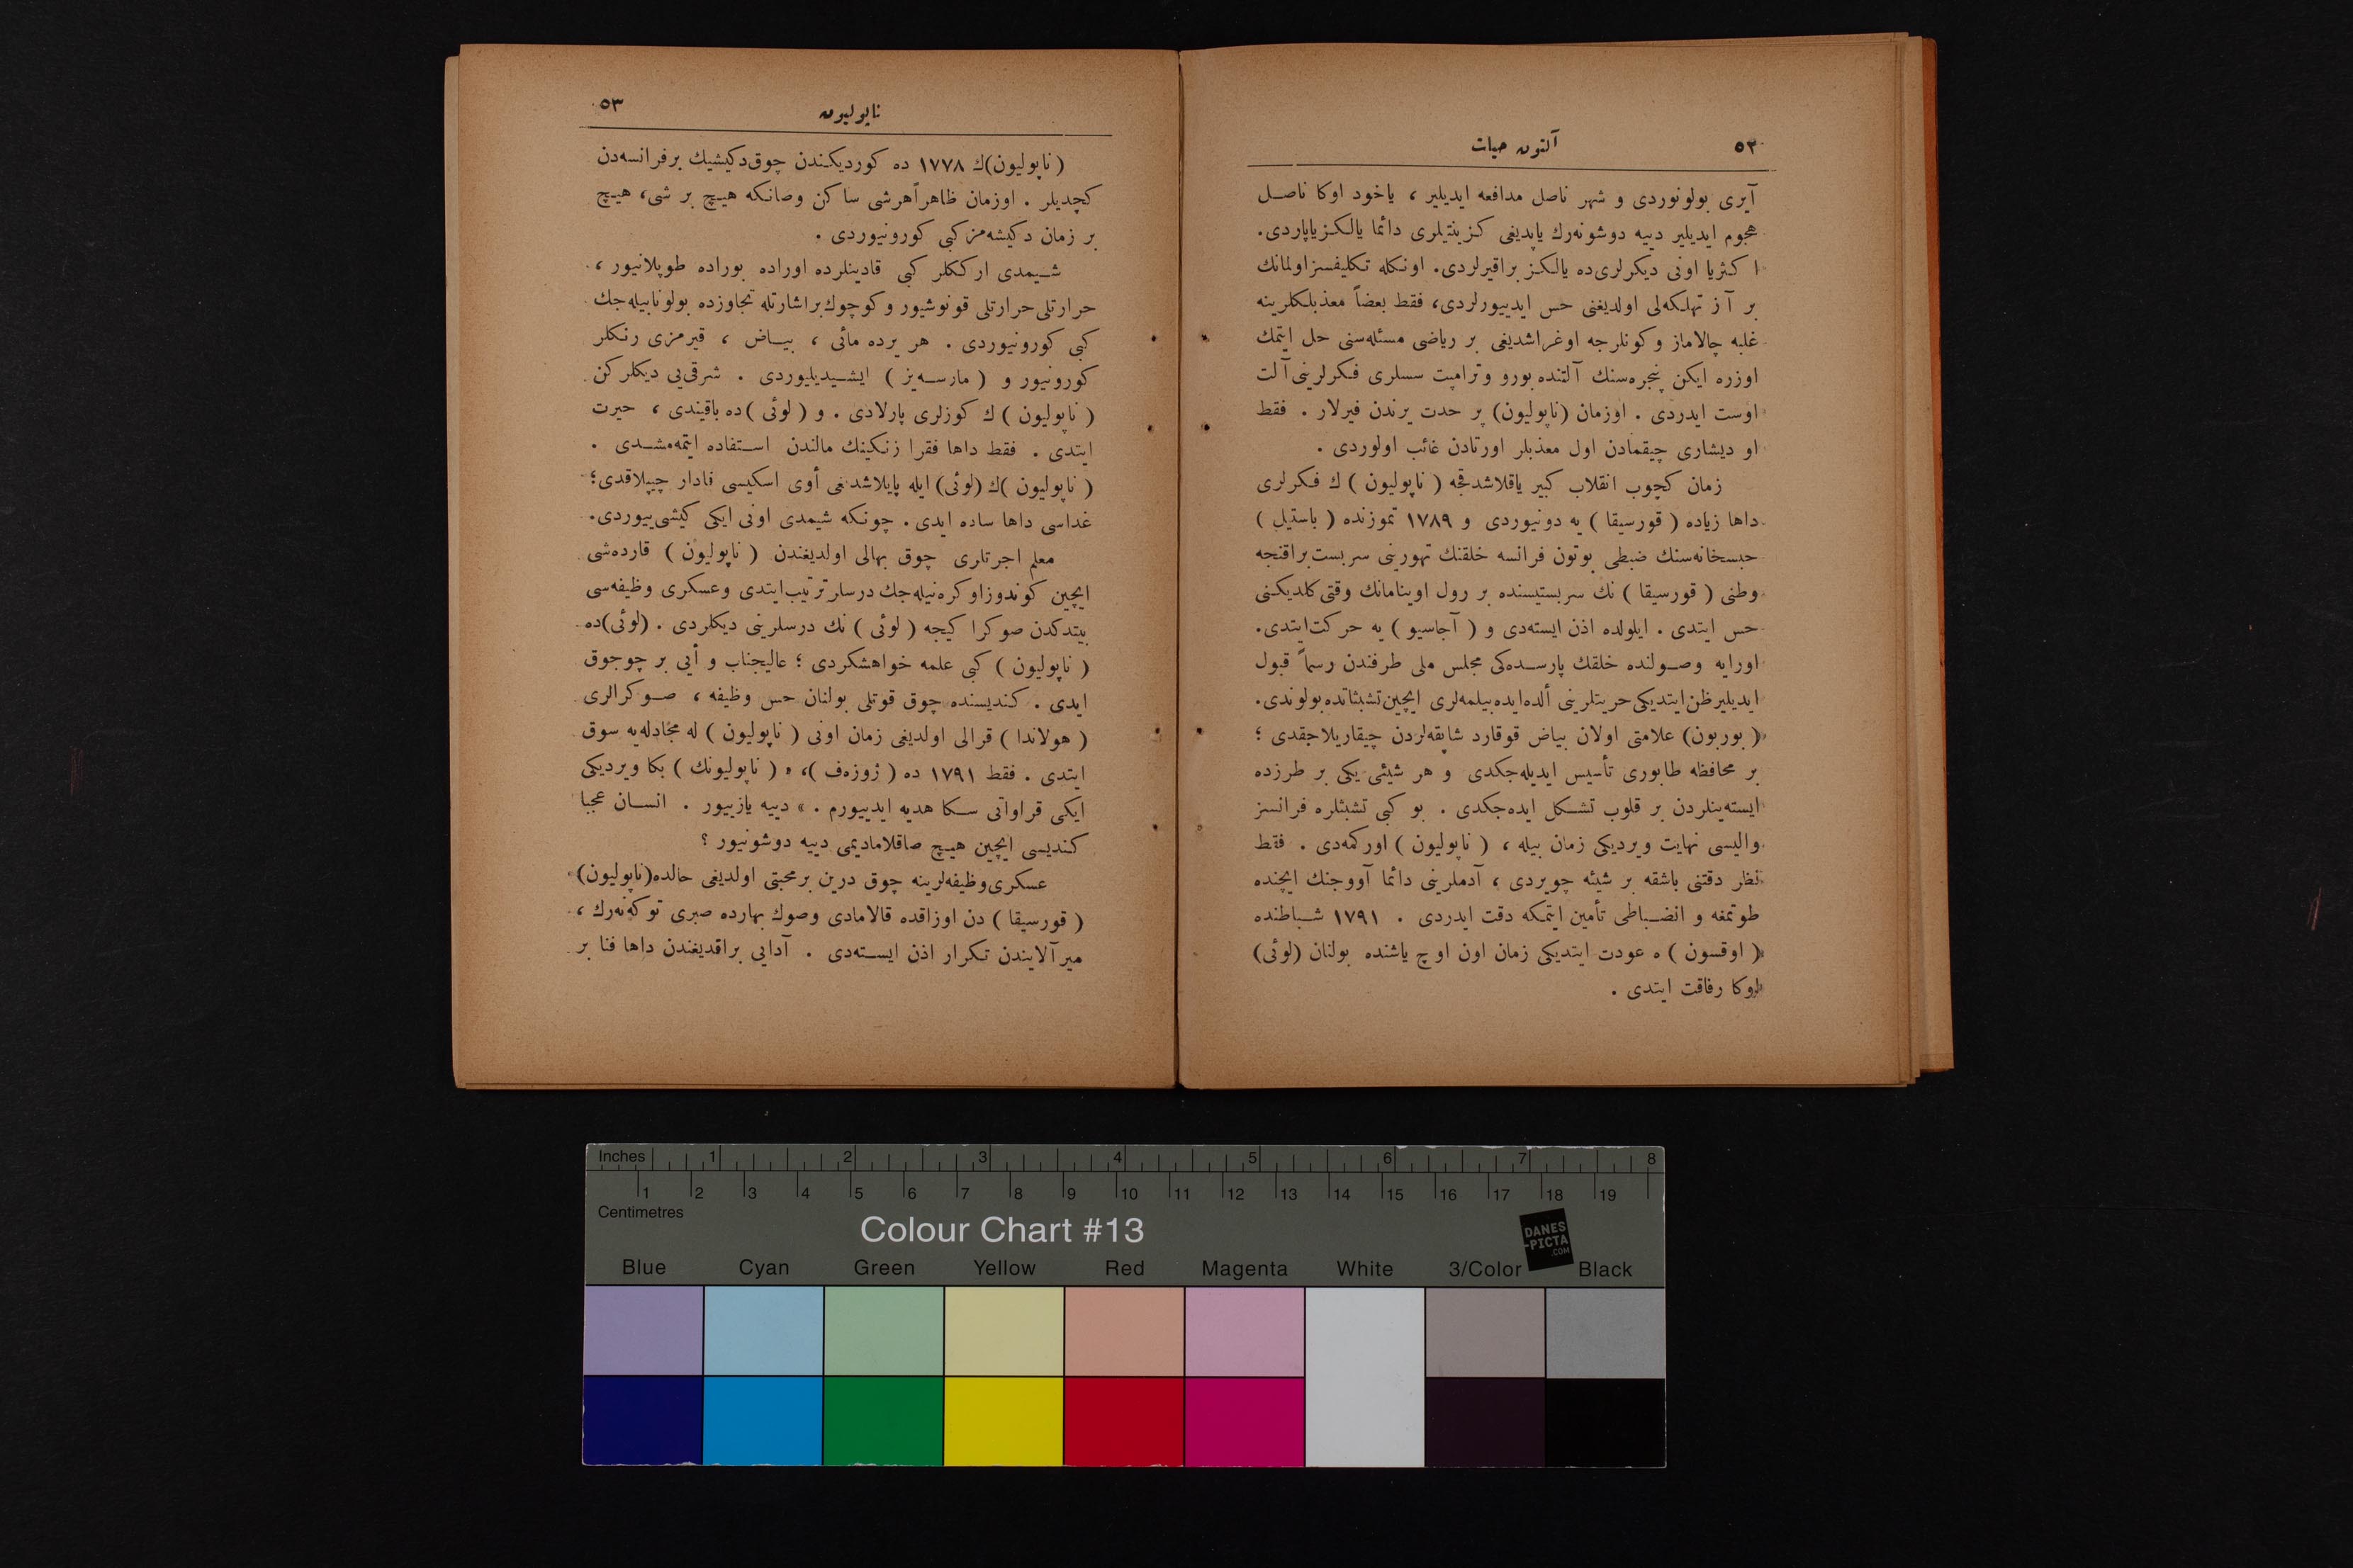 ٥٢
آلتون حيات
آيرى بولونوردى و شهر ناصل مدافعه ايديلير ، ياخود اوكا ناصل
هجوم ايديلير دييه دوشونه‌رك ياپديغى كزينتيلرى دائما يالكز ياپاردى.
اكثريا اونى ديكرلرى‌ده يالكز براقيرلردى. اونكله تكليفسز اولمانك
بر آز تهلكه‌لى اولديغنى حس ايدييورلردى، فقط بعضاً معذبلكلرينه
غلبه چالاماز وكونلرجه اوغراشديغى بر رياضى مسئله‌سنى حل ايتمك
اوزره ايكن پنجره‌سنك آلتنده بورو وترامپت سسلرى فكرلرينى آلت
اوست ايدردى . اوزمان (ناپوليون) پر حدت يرندن فيرلار . فقط
او ديشارى چيقمادن اول معذبلر اورتادن غائب اولوردى .
زمان كچوب انقلاب كبير ياقلاشدقجه ( ناپوليون ) ك فكرلرى
داها زياده ( قورسيقا ) يه دونيوردى و ١٧٨٩ تموزنده ( باستيل )
حبسخانه‌سنك ضبطى بوتون فرانسه خلقنك تهورينى سربست براقنجه
وطنى ( قورسيقا ) نك سربستيسنده بر رول اوينامانك وقتى كلديكنى
حس ايتدى . ايلولده اذن ايسته‌دى و ( آجاسيو ) يه حركت ايتدى.
اورايه وصولنده خلقك پارسده‌كى مجلس ملى طرفندن رسماً قبول
ايديلير ظن ايتديكى حريتلرينى ألده ايده بيلمه‌لرى ايچين تشبثاتده بولوندى.
( بوربون) علامتى اولان بياض قوقارد شاپقه‌لردن چيقاريلاجقدى ؛
بر محافظه طابورى تأسيس ايديله‌جكدى و هر شيئى يكى بر طرزده
ايسته‌ينلردن بر قلوب تشكل ايده‌جكدى . بو كبى تشبثلره فرانسز
واليسى نهايت ويرديكى زمان بيله ، ( ناپوليون ) اوركمه‌دى . فقط
نظر دقتنى باشقه بر شيئه چويردى ، آدملرينى دائما آووجنك ايچنده
طوتمغه و انضباطى تأمين ايتمكه دقت ايدردى . ١٧٩١ شباطنده
( اوقسون ) ه عودت ايتديكى زمان اون اوچ ياشنده بولنان (لوئى)
اوكا رفاقت ايتدى .
٥٣
ناپوليون
( ناپوليون)ك ١٧٧٨ ده كورديكندن چوق دكيشيك برفرانسه‌دن
كچديلر . اوزمان ظاهراً هرشى ساكن وصانكه هيچ بر شى، هيچ
بر زمان دكيشه‌مز كبى كورونيوردى .
شيمدى اركلكر كبى قادينلرده اوراده بوراده طوپلانيور ،
حرارتلى حرارتلى قونوشيور وكوچوك براشارتله تجاوزده بولونابيله‌جك
كبى كورونيوردى . هر يرده مائى ، بياض ، قيرمزى رنكلر
كورونيور و ( مارسه‌يز ) ايشيديليوردى . شرقى‌يى ديكلركن
( ناپوليون ) ك كوزلرى پارلادى . و ( لوئى )ده باقيندى ، حيرت
ايتدى . فقط داها فقرا زنكينك مالندن استفاده ايتمه‌مشدى .
( ناپوليون )ك (لوئى) ايله پايلاشدغى أوى اسكيسى قادار چيپلاقدى؛
غداسى داها ساده ايدى. چونكه شيمدى اونى ايكى كيشى‌ييوردى.
معلم اجرتلرى چوق بهالى اولديغندن ( ناپوليون ) قارده‌شى
ايچين كوندوز اوكره‌نيله‌جك درسلر ترتيب ايتدى وعسكرى وظيفه‌سى
بيتدكدن صوكرا كيجه ( لوئى ) نك درسلرينى ديكلردى . (لوئى)ده
( ناپوليون ) كبى علمه خواهشكردى ؛ عاليجناب و أيى بر چوجوق
ايدى . كنديسنده چوق قوتلى بولنان حس وظيفه ، صوكرالرى
( هولاندا ) قرالى اولديغى زمان اونى ( ناپوليون ) له مجادله‌يه سوق
ايتدى . فقط ١٧٩١ ده ( ژوزه‌ف )، « ( ناپوليونك ) بكا ويرديكى
ايكى قراواتى سكا هديه ايدييورم . » دييه يازييور . انسان عجبا
كنديسى ايچين هيچ صاقلاماديمى دييه دوشونيور ؟
عسكرى وظيفه‌لرينه چوق درين برمحبتى اولديغى حالده(ناپوليون)
( قورسيقا ) دن اوزاقده قالامادى وصوك بهارده صبرى توكه‌نه‌رك ،
مير آلايندن تكرار اذن ايسته‌دى . آدايى براقديغندن داها فنا بر
Inches 1 2 3 4 5 6 7 8
1 2 3 4 5 6 7 8 9 10 11 12 13 14 15 16 17 18 19
Centimetres
Colour Chart #13
DANES
-PICTA
.COM
Blue Cyan Green Yellow Red Magenta White 3/Color Black